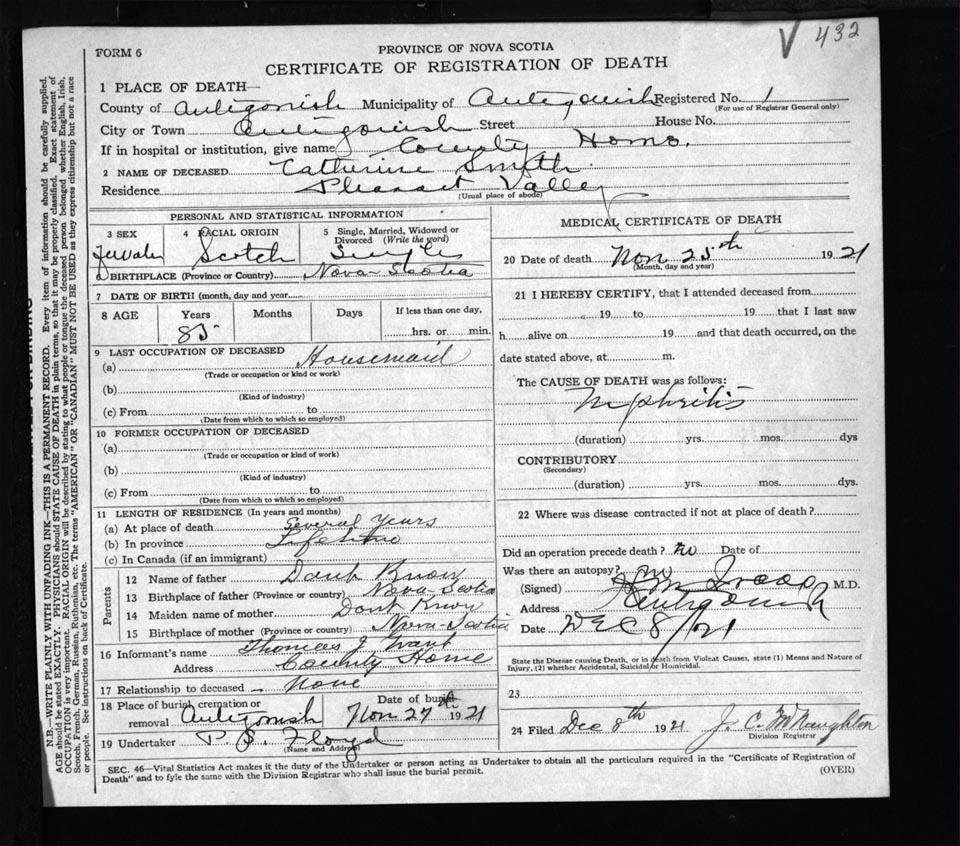 432
FORM 6
PROVINCE OF NOVA SCOTIA
CERTIFICATE OF REGISTRATION OF DEATH
1 PLACE OF DEATH—
County of Antigonish Municipality of Antigonish Registered No. 1
(For use of Registrar General only)
City or Town Antigonish Street House No.
If in hospital or institution, give name County Home.
2 NAME OF DECEASED Catherine Smyth
Residence Pleasant Valley
(Usual place of abode)
PERSONAL AND STATISTICAL INFORMATION
3 SEX 4 RACIAL ORIGIN 5 Single, Married, Widowed or Divorced (Write the word)
Female Scotch Single
6 BIRTHPLACE (Province or Country) Nova-Scotia
7 DATE OF BIRTH (month, day and year)
8 AGE Years Months Days If less than one day,
85 hrs. or min.
9 LAST OCCUPATION OF DECEASED
(a) Housemaid
(Trade or occupation or kind or work)
(b)
(Kind of industry)
(c) From to
(Date from which to which so employed)
10 FORMER OCCUPATION OF DECEASED
(a)
(Trade or occupation or kind of work)
(b)
(Kind of industry)
(c) From to
(Date from which to which so employed)
11 LENGTH OF RESIDENCE (In years and months)
(a) At place of death Several Years
(b) In province Lifetime
(c) In Canada (if an immigrant)
Parents
12 Name of father Dont Know
13 Birthplace of father (Province or country) Nova-Scotia
14 Maiden name of mother Dont Know
15 Birthplace of mother (Province or country) Nova-Scotia
16 Informant's name Thomas J. Grant
Address County Home
17 Relationship to deceased None
18 Place of burial, cremation or removal Antigonish Date of burial Nov 27th 1921
19 Undertaker P. S. Floyd
(Name and Address)
MEDICAL CERTIFICATE OF DEATH
20 Date of death Nov 25th 1921
(Month, day and year)
21 I HEREBY CERTIFY, that I attended deceased from
19 to 19 that I last saw
h alive on 19 and that death occurred, on the
date stated above, at m.
The CAUSE OF DEATH was as follows:
Nephritis
(duration) yrs. mos. dys
CONTRIBUTORY
(Secondary)
(duration) yrs. mos. dys.
22 Where was disease contracted if not at place of death?
Did an operation precede death? no Date of
Was there an autopsy? no
(Signed) M.D.
Address Antigonish
Date Dec 8/21
State the Disease causing Death, or in death from Violent Causes, state (1) Means and Nature of
Injury, (2) whether Accidental, Suicidal or Homicidal.
23
24 Filed Dec 8th 1921 J. C. McNaughton
Division Registrar
SEC. 46—Vital Statistics Act makes it the duty of the Undertaker or person acting as Undertaker to obtain all the particulars required in the "Certificate of Registration of
Death" and to fyle the same with the Division Registrar who shall issue the burial permit.
(OVER)
N.B.—WRITE PLAINLY WITH UNFADING INK—THIS IS A PERMANENT RECORD. Every item of information should be carefully supplied.
AGE should be stated EXACTLY. PHYSICIANS should STATE CAUSE OF DEATH in plain terms, so that it may be properly classified. Exact statement of
OCCUPATION is very important. RACIAL ORIGIN will be described by stating to what people or tongue the deceased person belonged, whether English, Irish,
Scotch, French, German, Russian, Ruthenian, etc. The terms "AMERICAN" OR "CANADIAN" MUST NOT BE USED as they express citizenship but not a race
or people. See instructions on back of Certificate.